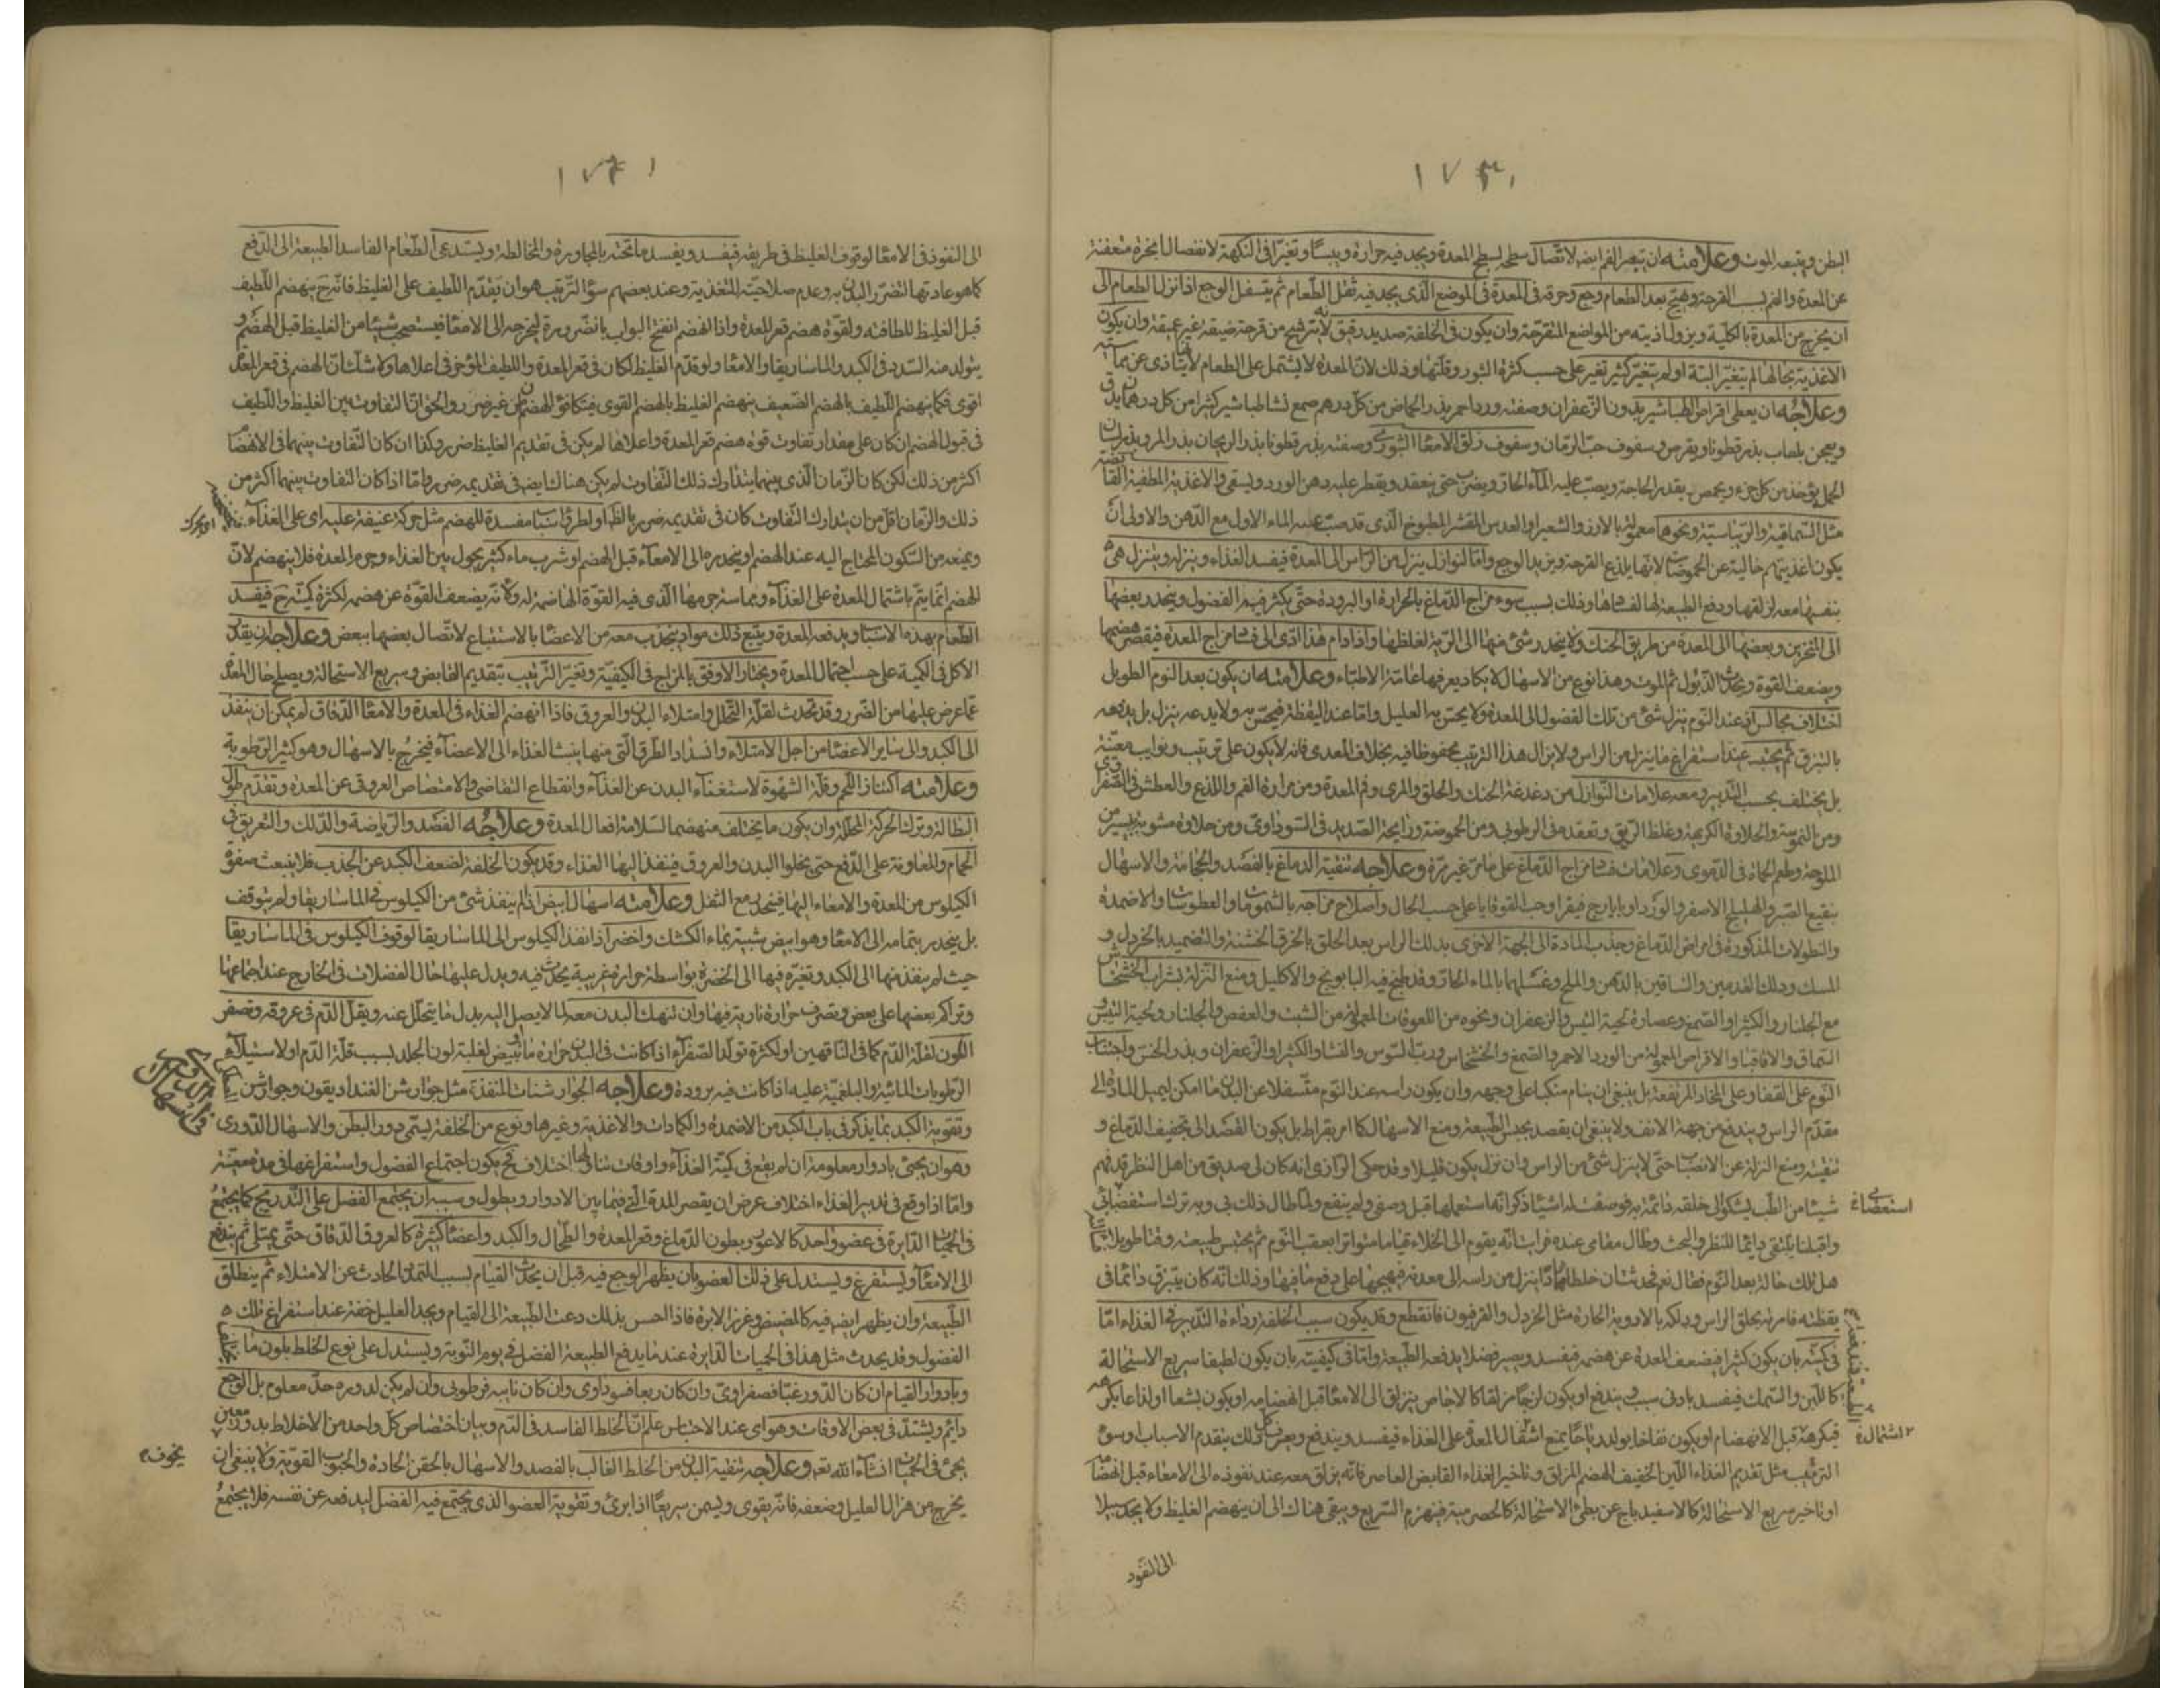 البطن ويتبعه الموت وعلامته ان يتغير الفم ايضا لاتصال سطحه بسطح المعدة ويجد فيه حرارة ويبسا وتغيرا في النكهة لانفصال ابخرة متعفنة
عن المعدة والفم بسبب القرحة وهيج بعد الطعام وجع وحرقة في المعدة في الموضع الذي يجد فيه ثقل الطعام ثم يتسفل الوجع اذا نزل الطعام الى
ان يخرج من المعدة بالكلية ويزول اذيته من المواضع المتقرحة وان يكون في الخلفة صديد رقيق لانه ترشح من قرحة ضيقة غير عميقة وان يكون
الاغذية بحالها لم يتغير البتة او لم يتغير كثير تغير على حسب كثرة البثور وقلتها وذلك لان المعدة لا يشتمل على الطعام لانها يتاذى عن مماسته
وعلاجه ان يعطى اقراص الطباشير بدون الزعفران وصفته ورد احمر بذر الحماض من كل درهم صمغ نشا طباشير كثيرا من كل درهم يدق
ويعجن بلعاب بذر قطونا ويقرص وسفوف حب الرمان وسفوف زلق الامعاء البثوري وصفته بذر قطونا بذر الريحان بذر المرو بذر لسان
الحمل يؤخذ من كل جزء ويحمص بقدر الحاجة ويصب عليه الماء الحار ويضرب حتى ينعقد ويقطر عليه دهن الورد ويسقى والاغذية المطفية القابضة
مثل السماقية والريباسية ونحوها معمولة بالارز والشعير او العدس المقشر المطبوخ الذي قد صب عنه الماء الاول مع الدهن والاولى ان
يكون اغذيتهم خالية عن الحموضات لانها يلذع القرحة ويزيد الوجع واما النوازل ينزل من الراس الى المعدة فيفسد الغذاء وينزله وينزل هي
بنفسها معه لزلقها ودفع الطبيعة لها لفسادها وذلك بسبب سوء مزاج الدماغ بالحرارة او البرودة حتى يكثر فيه الفضول وينحدر بعضها
الى المنخرين وبعضها الى المعدة من طريق الحنك ولا ينحدر شئ منها الى الرية لغلظها واذا دام هذا ادى الى فساد مزاج المعدة فيقصر هضمها
ويضعف القوة ويحدث الذبول ثم الموت وهذا نوع من الاسهال لا يكاد يعرفها عامة الاطباء وعلامته ان يكون بعد النوم الطويل
اختلاف مجالس فعند النوم ينزل شئ من تلك الفضول الى المعدة ولا يحس به العليل واما عند اليقظة فيحس به ولا يدعه ينزل بل يدفعه
بالتبزق ثم يحتبس عند استفراغ ما ينزل من الراس ولا يزال هذا الترتيب محفوظا فيه بخلاف المعدي فانه لا يكون على ترتيب ونوايب معينة
بل يختلف بحسب التدبير ومعه علامات النوازل من دغدغة الحنك والحلق والمرى وفم المعدة ومن مرارة الفم واللذع والعطش في الصفراوي
ومن الدسومة والحلاوة الكريهة وغلظ الريق وتعقده في الرطوبي ومن الحموضة ورايحة الصديد في السوداوي ومن حلاوة مشوبة بيسير من
الملوحة وطعم الحماة في الدموي وعلامات فساد مزاج الدماغ على ما مر غير مرة وعلاجه تنقية الدماغ بالفصد والحجامة والاسهال
بنقيع الصبر والهليلج الاصفر والورد او بايارج فيقرا وحب القوقايا على حسب الحال واصلاح مزاجه بالشمومات والعطوسات والاضمدة
والنطولات المذكورة في امراض الدماغ وجذب المادة الى الجهة الاخرى بدلك الراس بعد الحلق بالخرق الخشنة والتضميد بالخردل و
المسك ودلك القدمين والساقين بالدهن والملح وغسلهما بالماء الحار وقد طبخ فيه البابونج والاكليل ومنع النزلة بشراب الخشخاش
مع الجلنار والكثيرا والصمغ وعصارة لحية التيس والزعفران ونحوه من اللعوقات المعمولة من الشبث والعفص والجلنار ولحية التيس و
السماق والاقاقيا والاقراص المعمولة من الورد الاحمر والصمغ والخشخاش ورب السوس والنشا والكثيرا والزعفران وبذر الخس واجتناب
النوم على القفا وعلى المخاد المرتفعة بل ينبغي ان ينام منكبا على وجهه وان يكون راسه عند النوم متسفلا عن البدن ما امكن ليميل المادة الى
مقدم الراس ويندفع من جهة الانف ولا ينبغي ان يقصد بحبس الطبيعة ومنع الاسهال كما امر بقراط بل يكون القصد الى تجفيف الدماغ و
تنقيته ومنع النزلة عن الانصباب حتى لا ينزل شئ من الراس وان نزل يكون قليلا وقد حكى الرازي انه كان لي صديق من اهل النظر قد فهم
شيئا من الطب يشكو الى خلفة دائمة به فوصفت له اشياء ذكر انه استعملها قبل وصفي ولم ينفع ولما طال ذلك بي وبه ترك استقضائي
استعضاء
واقبلنا يلتقي دايما للنظر والبحث وطال مقامي عنده فرايت انه يقوم الى الخلاء قياما متواترا بعقب النوم ثم يحتبس طبيعته وقتا طويلا
هل تلك حالة بعد النوم فقال نعم فحدثنا ان خلطا حادا ينزل من راسه الى معدته فيهيجها على دفع ما فيها وذلك انه كان يتبزق دائما في
يقظته فامرته بحلق الراس ودلكه بالادوية الحارة مثل الخردل والفرفيون فانقطع وقد يكون سبب الخلفة رداءة التدبير في الغذاء اما
في كميته بان يكون كثيرا فيضعف المعدة عن هضمه فيفسد ويصير فضلا يدفعه الطبيعة واما في كيفيته بان يكون لطيفا سريع الاستحالة
كاللبن والسمك فيفسد بادنى سبب ويندفع او يكون لزجا مزلقا كالاجاص ينزلق الى الامعاء قبل انهضامه او يكون بشعا او لذاعا يكرهه
فيكرهه قبل الانهضام او يكون نفاخا يولد رياحا يمنع اشتمال المعدة على الغذاء فيفسد ويندفع ويعرف كل ذلك بتقدم الاسباب او سوء
٢ اشتمالة
الترتيب مثل تقديم الغذاء اللين الخفيف الهضم المزلق وتاخير الغذاء القابض العاصر فانه ينزلق معه عند نفوذه الى الامعاء قبل انهضامه
او تاخير سريع الاستحالة كالاسفيدباج عن بطئ الاستحالة كالحصرمية فينهضم السريع ويبقى هناك الى ان ينهضم الغليظ ولا يجد سبيلا
الى النفوذ
الى النفوذ في الامعاء لوقوف الغليظ في طريقه فيفسد ويفسد ما تحته بالمجاورة والمخالطة ويستدعي الطعام الفاسد الطبيعة الى الدفع
كما هو عادتها لتضرر البدن به وعدم صلاحيته للتغذية وعند بعضهم سوء الترتيب هو ان يقدم اللطيف على الغليظ فانه ح ينهضم اللطيف
قبل الغليظ للطافته ولقوة هضم قعر المعدة واذا انهضم انفتح البواب بالضرورة ليخرجه الى الامعاء فيستصحب شيئا من الغليظ قبل الهضم و
يتولد منه السدد في الكبد والماساريقا والامعاء ولو قدم الغليظ لكان في قعر المعدة واللطيف المؤخر في اعلاها ولا شك ان الهضم في قعر المعدة
اقوى فكما ينهضم اللطيف بالهضم الضعيف ينهضم الغليظ بالهضم القوي فيتكافؤ الهضمان من غير ضرر والحق ان التفاوت بين الغليظ واللطيف
في قبول الهضم ان كان على مقدار تفاوت قوة هضم قعر المعدة واعلاها لم يكن في تقديم الغليظ ضرر وكذا ان كان التفاوت بينهما في الانهضام
اكثر من ذلك لكن كان الزمان الذي بينهما يتدارك ذلك التفاوت لم يكن هناك ايضا في تقديمه ضرر واما اذا كان التفاوت بينهما اكثر من
ذلك والزمان اقل من ان يتدارك التفاوت كان في تقديمه ضرر بالظاهر او لطريان اسباب مفسدة للهضم مثل حركة عنيفة عليه اى على الغذاء
اى يحرك
ويمنعه من السكون المحتاج اليه عند الهضم او ينحدر به الى الامعاء قبل الهضم او شرب ماء كثير يحول بين الغذاء وجرم المعدة فلا ينهضم لان
الهضم انما يتم باشتمال المعدة على الغذاء ومماسة جرمها الذي فيه القوة الهاضمة له ولانه يضعف القوة عن هضمه لكثرة كميته ح فيفسد
الطعام بهذه الاسباب ويدفعه المعدة ويتبع ذلك مواد ينجذب معه من الاعضاء بالاستتباع لاتصال بعضها ببعض وعلاجه ان يقدر
الاكل في الكمية على حسب احتمال المعدة ويختار الاوفق بالمزاج في الكيفية وتغير الترتيب بتقديم القابض وسريع الاستحالة ويصلح حال المعدة
عما عرض عليها من الضرر وقد تحدث لقلة التحلل وامتلاء البدن والعروق فاذا انهضم الغذاء في المعدة والامعاء الدقاق لم يمكن ان ينفذ
الى الكبد والى سائر الاعضاء من اجل الامتلاء وانسداد الطرق التي منها ينبث الغذاء الى الاعضاء فيخرج بالاسهال وهو كثير الرطوبة
وعلامته اكتناز اللحم وقلة الشهوة لاستغناء البدن عن الغذاء وانقطاع التقاضي والامتصاص العروقي عن المعدة وتقدم طول
البطالة وترك الحركة المحللة وان يكون ما يختلف منهضما لسلامة افعال المعدة وعلاجه الفصد والرياضة والدلك والتعريق في
الحمام والمعاونة على الدفع حتى يخلوا البدن والعروق فينفذ اليها الغذاء وقد يكون الخلفة لضعف الكبد عن الجذب فلا ينبعث صفو
الكيلوس من المعدة والامعاء اليها فينحدر مع الثفل وعلامته اسهال ابيض اذا لم ينفذ شئ من الكيلوس في الماساريقا ولم يتوقف
بل ينحدر بتمامه الى الامعاء وهو ابيض شبيه بماء الكشك واخضر اذا نفذ الكيلوس الى الماساريقا لوقوف الكيلوس في الماساريقا
حيث لم ينفذ منها الى الكبد وتغيره فيها الى الخضرة بواسطة حرارة غريبة يحدث فيه ويدل عليها حال الفضلات في الخارج عند اجتماعها
وتراكم بعضها على بعض وتصرف حرارة نارية فيها وان تنهك البدن معه لما لا يصل اليه بدل ما يتحلل عنه ويقل الدم في عروقه وتصفر
اللون لقلة الدم كما في الناقهين او لكثرة تولد الصفراء اذا كانت في البدن حرارة ما او يبيض لغلبة لون الجلد بسبب قلة الدم او لاستيلاء
الرطوبات المائية والبلغمية عليه اذا كانت فيه برودة وعلاجه الجوارشنات المنفذة مثل جوارشن الفنداديقون وجوارشن
وتقوية الكبد بما يذكر في باب الكبد من الاضمدة والكمادات والاغذية وغيرها ونوع من الخلفة يسمى دور البطن والاسهال الدوري
وهو ان يجئ بادوار معلومة ان لم يقع في كمية الغذاء واوقات تناولها اختلاف فح يكون اجتماع الفضول واستفراغها في مدة معينة
واما اذا وقع في تدبير الغذاء اختلاف عرض ان يقصر المدة التي فيما بين الادوار ويطول وسببه ان يجتمع الفضل على التدريج كما يجتمع
في الحميات الدايرة في عضو واحد كالاعور وبطون الدماغ وقعر المعدة والطحال والكبد واعضاء كثيرة كالعروق الدقاق حتى يمتلى ثم يندفع
الى الامعاء ويستفرغ ويستدل على ذلك العضو بان يظهر الوجع فيه قبل ان يحدث القيام بسبب التمدد الحادث عن الامتلاء ثم ينطلق
الطبيعة وان يظهر ايضا فيه كالمضيض وغرز الابرة فاذا احس بذلك دعت الطبيعة الى القيام ويجد العليل خفة عند استفراغ تلك
الفضول وقد يحدث مثل هذا في الحميات الدايرة عند ما يدفع الطبيعة الفضل في يوم النوبة ويستدل على نوع الخلط بلون ما
وبادوار القيام ان كان الدور غبا فصفراوي وان كان ربعا فسوداوي وان كان نايبه فرطوبي وان لم يكن لدوره حد معلوم بل الوجع
دايم ويشتد في بعض الاوقات وهو اى عند الاحتباس علم ان الخلط الفاسد في الدم وبيان اختصاص كل واحد من الاخلاط بدور معين
يجئ في الحميات انشاء الله تعه وعلاجه تنقية البدن من الخلط الغالب بالفصد والاسهال بالحقن الحادة والحبوب القوية ولا ينبغي ان
يخوف
يخرج من هزال العليل وضعفه فانه يقوى ويسمن سريعا اذا برئ وتقوية العضو الذي يجتمع فيه الفضل ليدفعه عن نفسه فلا يجتمع